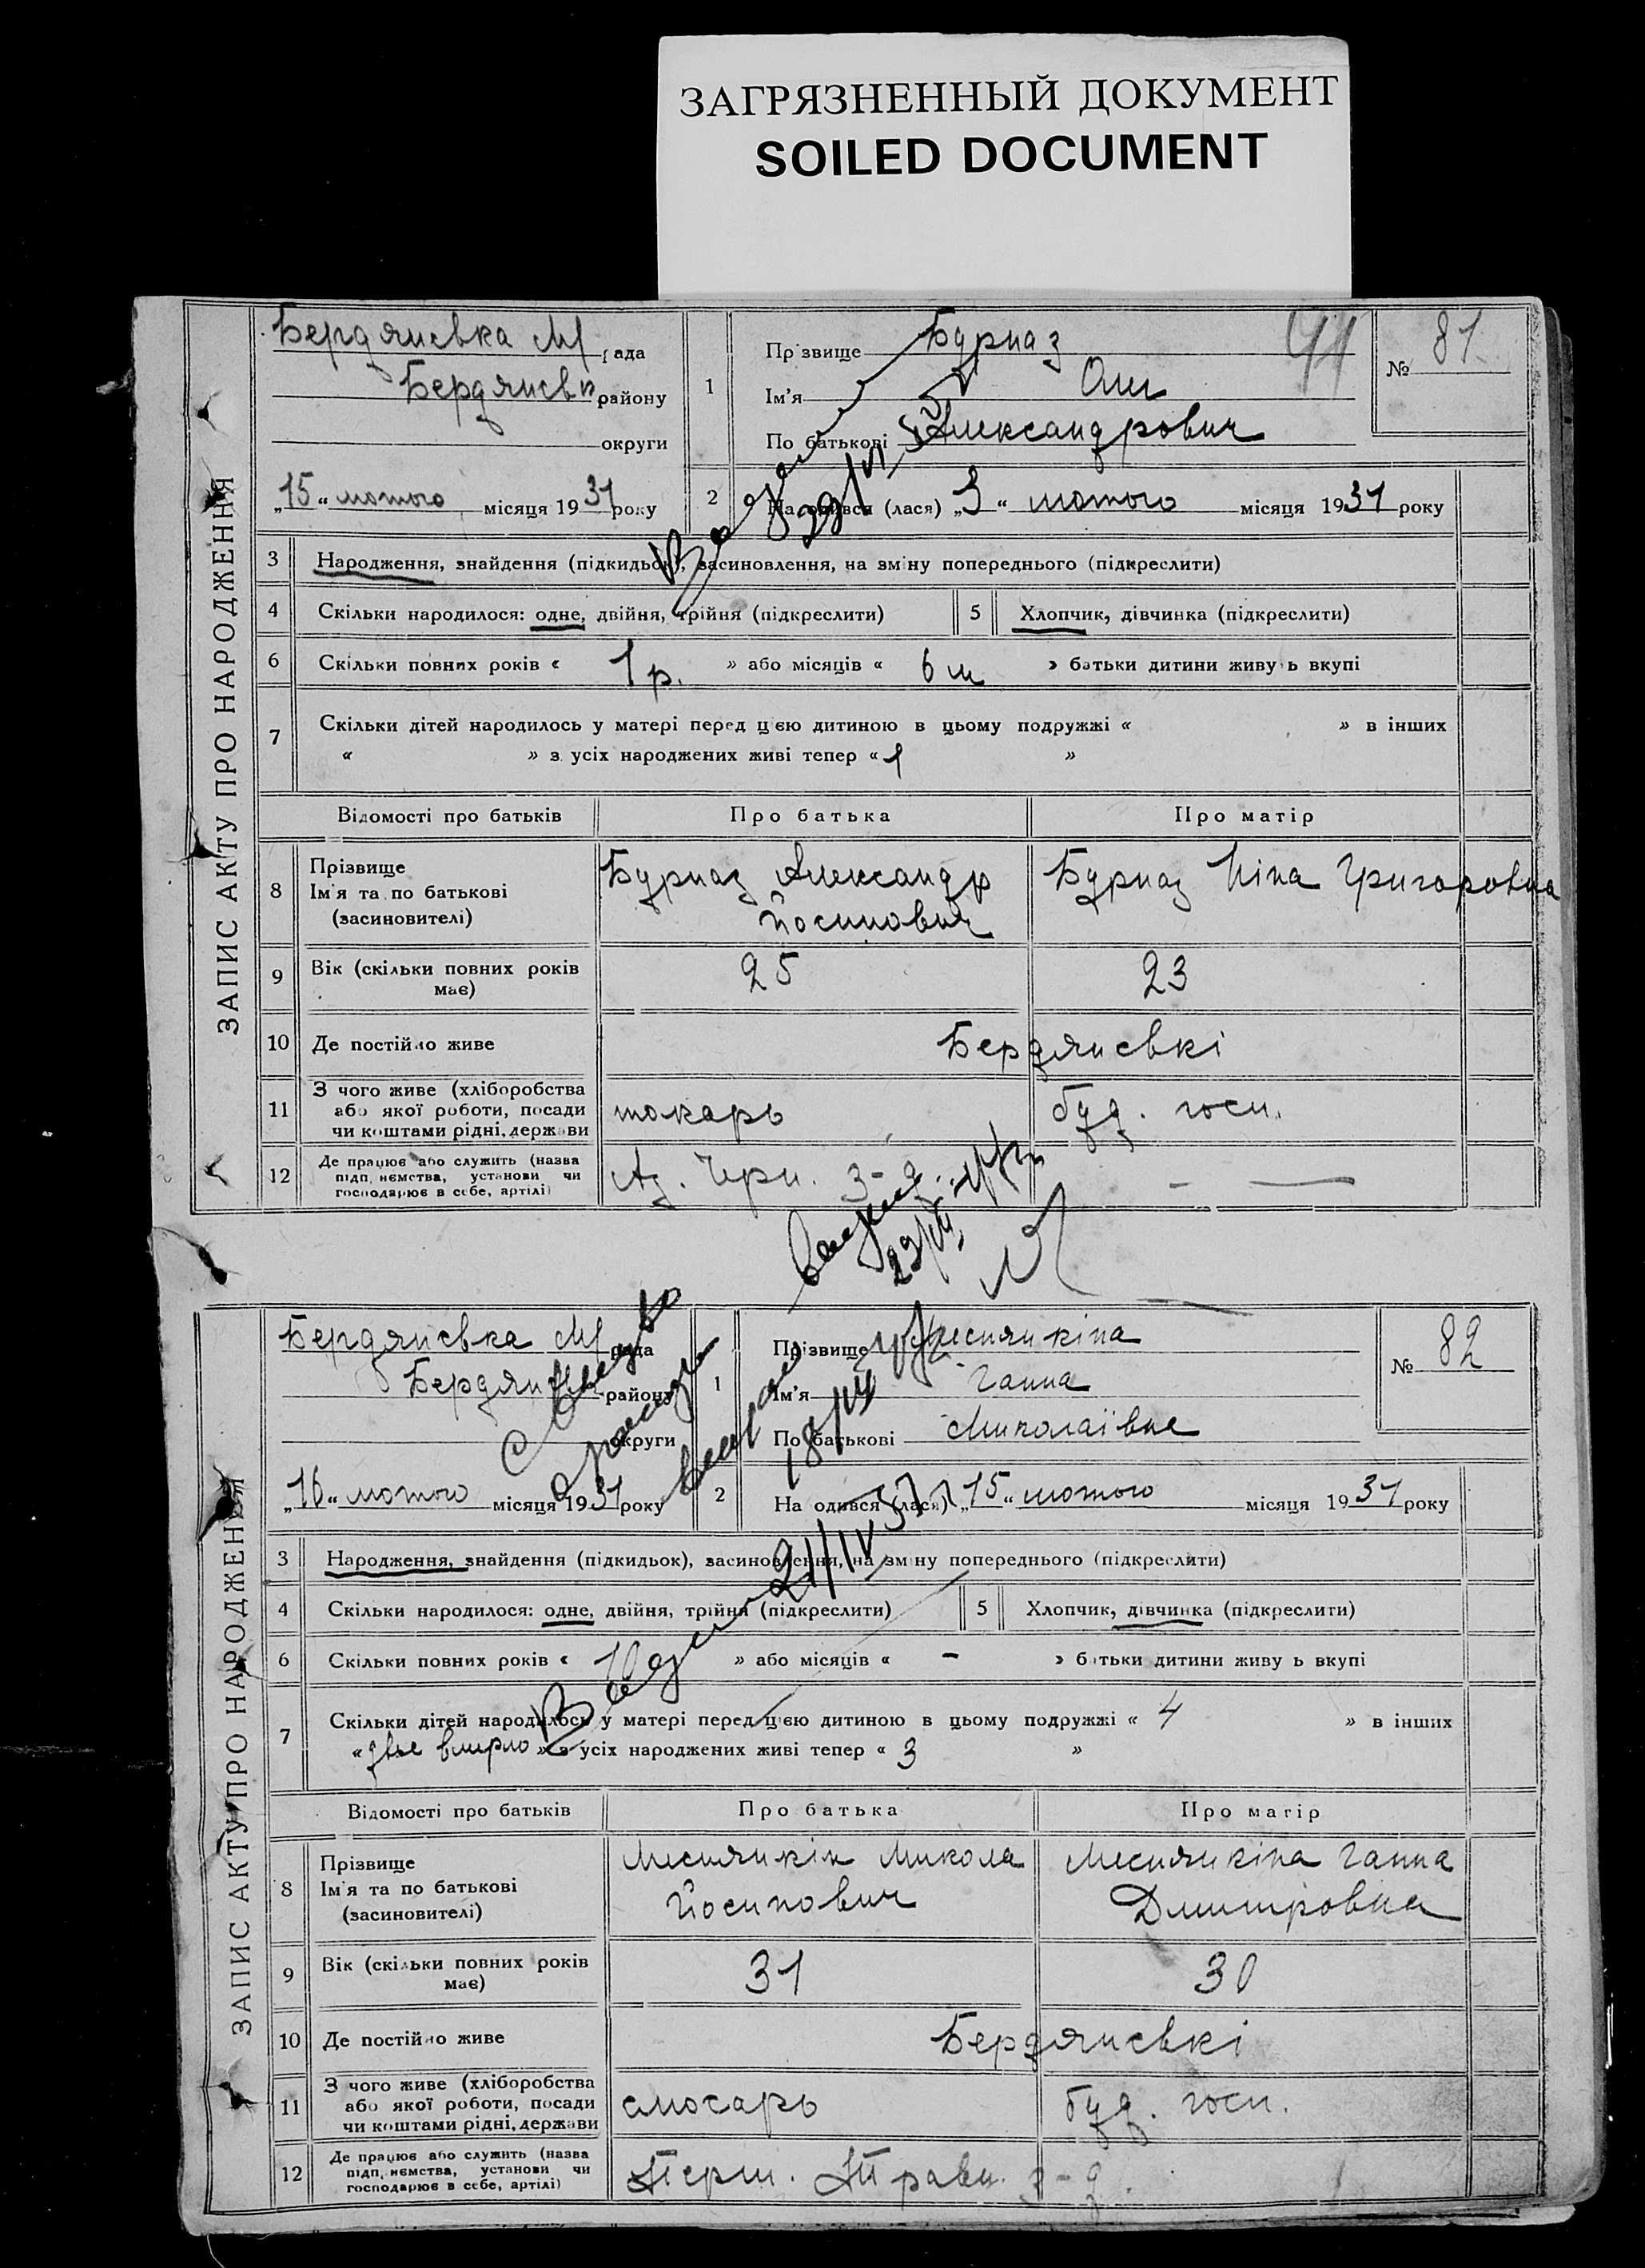 ЗАГРЯЗНЕННЫЙ ДОКУМЕНТ
SOILED DOCUMENT
ЗАПИС АКТУ ПРО НАРОДЖЕННЯ
Бердянська М рада
Бердянськ району
округи
„15“ лютого місяця 1931 року
1 Прізвище Бурназ
Ім'я
По батькові Александрович
№ 81
2 Народився (лася) „3“ лютого місяця 1931 року
3 Народження, знайдення (підкидьок), засиновлення, на зміну попереднього (підкреслити)
4 Скільки народилося: одне, двійня, трійня (підкреслити)
5 Хлопчик, дівчинка (підкреслити)
6 Скільки повних років « 1 р. » або місяців « 6 м » батьки дитини живуть вкупі
7 Скільки дітей народилось у матері перед цією дитиною в цьому подружжі « » в інших
« » з усіх народжених живі тепер « 1 »
Відомості про батьків Про батька Про матір
8 Прізвище
Ім'я та по батькові
(засиновителі)
Бурназ Александр
Йосипович
Бурназ Ніна Григоровна
9 Вік (скільки повних років
має)
25 23
10 Де постійно живе Бердянські
11 З чого живе (хліборобства
або якої роботи, посади
чи коштами рідні, держави
токарь буд. госп.
12 Де працює або служить (назва
підприємства, установи чи
господарює в себе, артілі)
з-д. –
ЗАПИС АКТУ ПРО НАРОДЖЕННЯ
Бердянська М рада
Бердян району
округи
„16“ лютого місяця 1931 року
1 Прізвище
Ім'я Ганна
По батькові Миколаївна
№ 82
2 Народився (лася) „15“ лютого місяця 1931 року
21/IV
3 Народження, знайдення (підкидьок), засиновлення, на зміну попереднього (підкреслити)
4 Скільки народилося: одне, двійня, трійня (підкреслити)
5 Хлопчик, дівчинка (підкреслити)
6 Скільки повних років « 10 » або місяців « – » батьки дитини живуть вкупі
7 Скільки дітей народилось у матері перед цією дитиною в цьому подружжі « 4 » в інших
« двое вмерло » з усіх народжених живі тепер « 3 »
Відомості про батьків Про батька Про матір
8 Прізвище
Ім'я та по батькові
(засиновителі)
Микола
Йосипович
Ганна
Дмитровна
9 Вік (скільки повних років
має)
31 30
10 Де постійно живе Бердянські
11 З чого живе (хліборобства
або якої роботи, посади
чи коштами рідні, держави
слюсарь буд. госп.
12 Де працює або служить (назва
підприємства, установи чи
господарює в себе, артілі)
Перш. Травн. з-д.